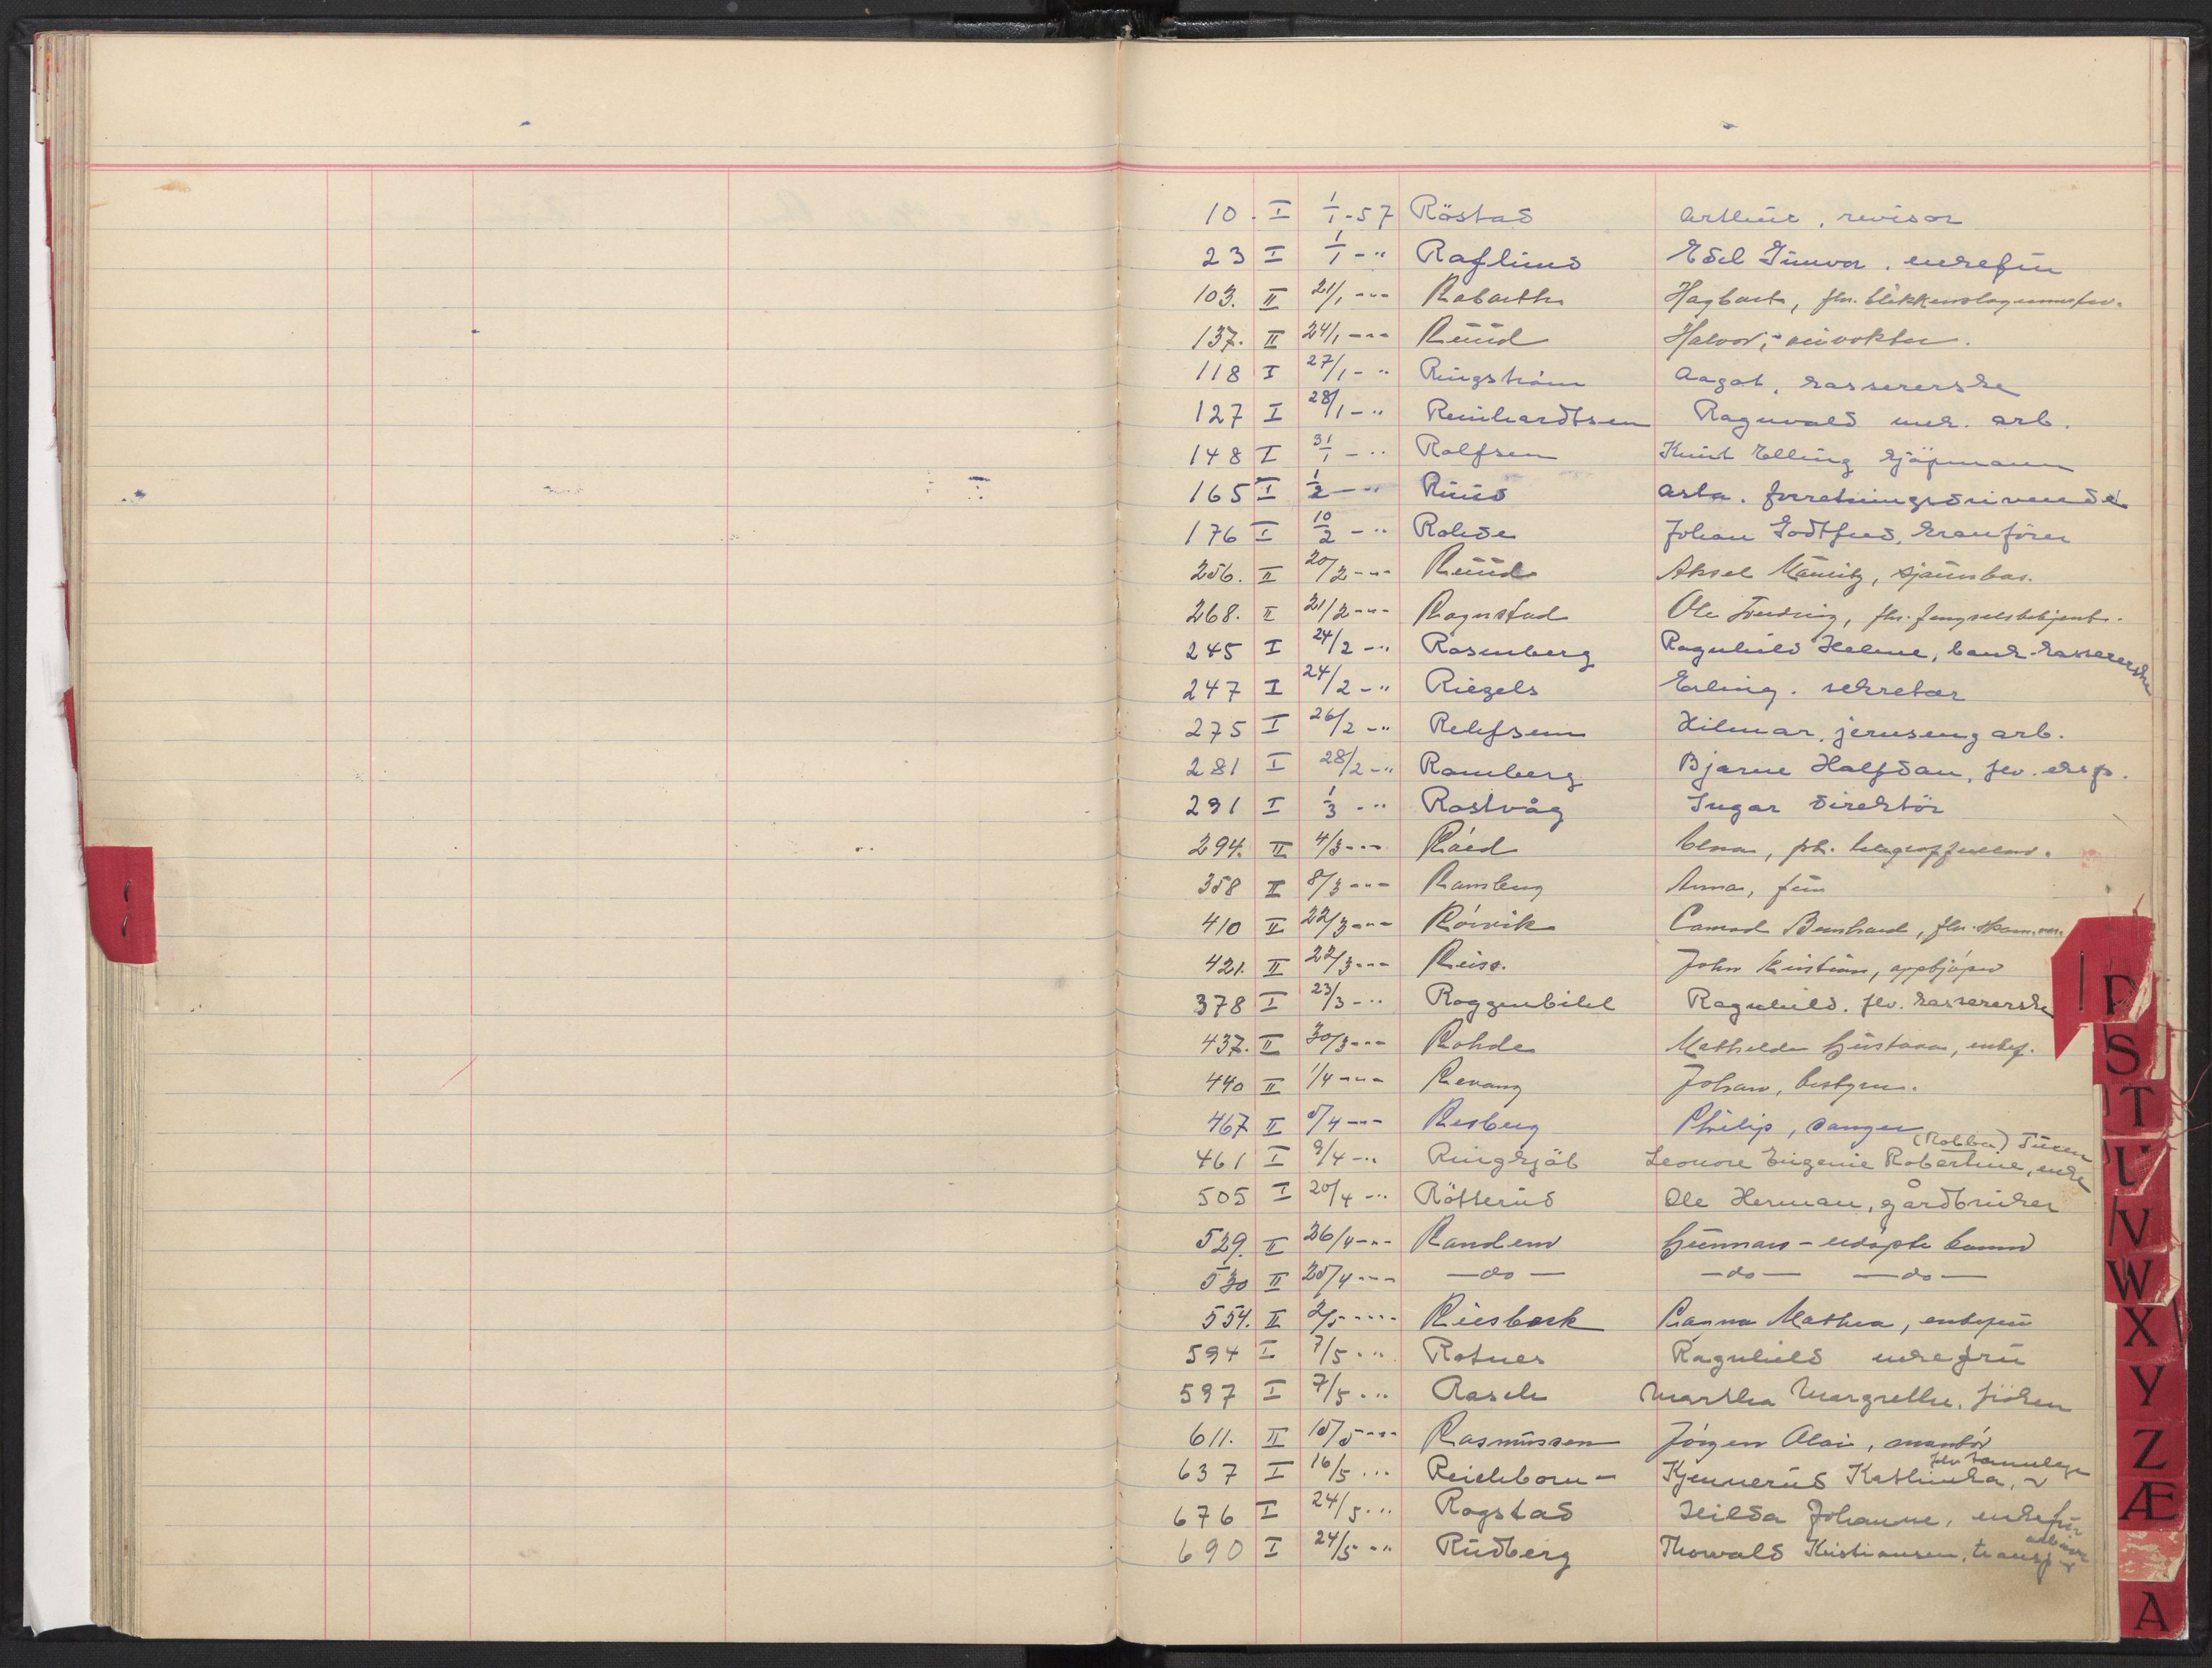 10. I 1/1-57 Röstad Arthur, revisor
23 I 1/1-" Raflund Edel Gunvor, enkefru
103. II 21/1 -"- Robarth Hagbart, fhv.
137. II 24/1 -"- Ruud Halvor,
118 I 27/1-" Ringström Aagot, kassererske
127 I 28/1-" Reinhardtsen Ragnvald mek. arb.
148 I 31/1-" Rolfsen Knut Elling kjöpmann
165 I 1/2-" Ruud Asta. forretningsdrivende
176 I 10/2-" Rohde Johan Godtfred, kranförer
256. II 20/2-"- Ruud Aksel Mauritz, sjauerbas.
268. II 21/2-"- Rognstad Ole fhv. fengselsbetjent.
245 I 24/2-" Rosenberg Ragnhild Helene, bank-kassererske
247 I 24/2-" Riegels Erling. sekretær
275 I 26/2-" Relefsen Hilmar, jernseng arb.
281 I 28/2-" Ramberg Bjarne Halfdan, fhv. eksp.
291 I 1/3-" Rostvåg Ingar direktör
294. II 4/3-"- Röed
358 II 8/3-"- Ramberg Anna, fru
410 II 22/3-"- Rörvik Conrad Bernhard, fhv.
421. II 22/3-"- Reiss. John Kristian, oppkjöper
378 I 23/3-" Roggenbihl Ragnhild. fhv. kassererske
437. II 30/3-"- Rohde Mathilde Gustava, enkef.
440 II 1/4-"- Revang Johan, bestyrer.
467 II 5/4-"- Resberg Philip, sanger
461 I 9/4-" Ringkjöb Leonore Eugenie Robertine, (Robba) Turen enke
505 I 20/4-" Rötterud Ole Herman, gårdbruker
529. II 26/4-"- Randem Gunnars - udöpte barn
530 II 25/4-"- -do- -do- -do-
554. II 2/5-"- Riesbeck Ragna Mathea, enkefru
594 I 7/5-" Rotnes Ragnhild enkefru
597 I 7/5-" Rasch Martha Margrethe, fröken
611. II 15/5-"- Rasmussen Jörgen Olai, montör
637 I 16/5-" Reichborn- Kjennerud Kathinka, fhv tannlege
676 I 24/5-" Rogstad Hilda Johanne, enkefru
690 I 24/5-" Rudberg Thorvald Kristiansen, transp. arbeider
R
S
T
U
V
W
X
Y
Z
Æ
A